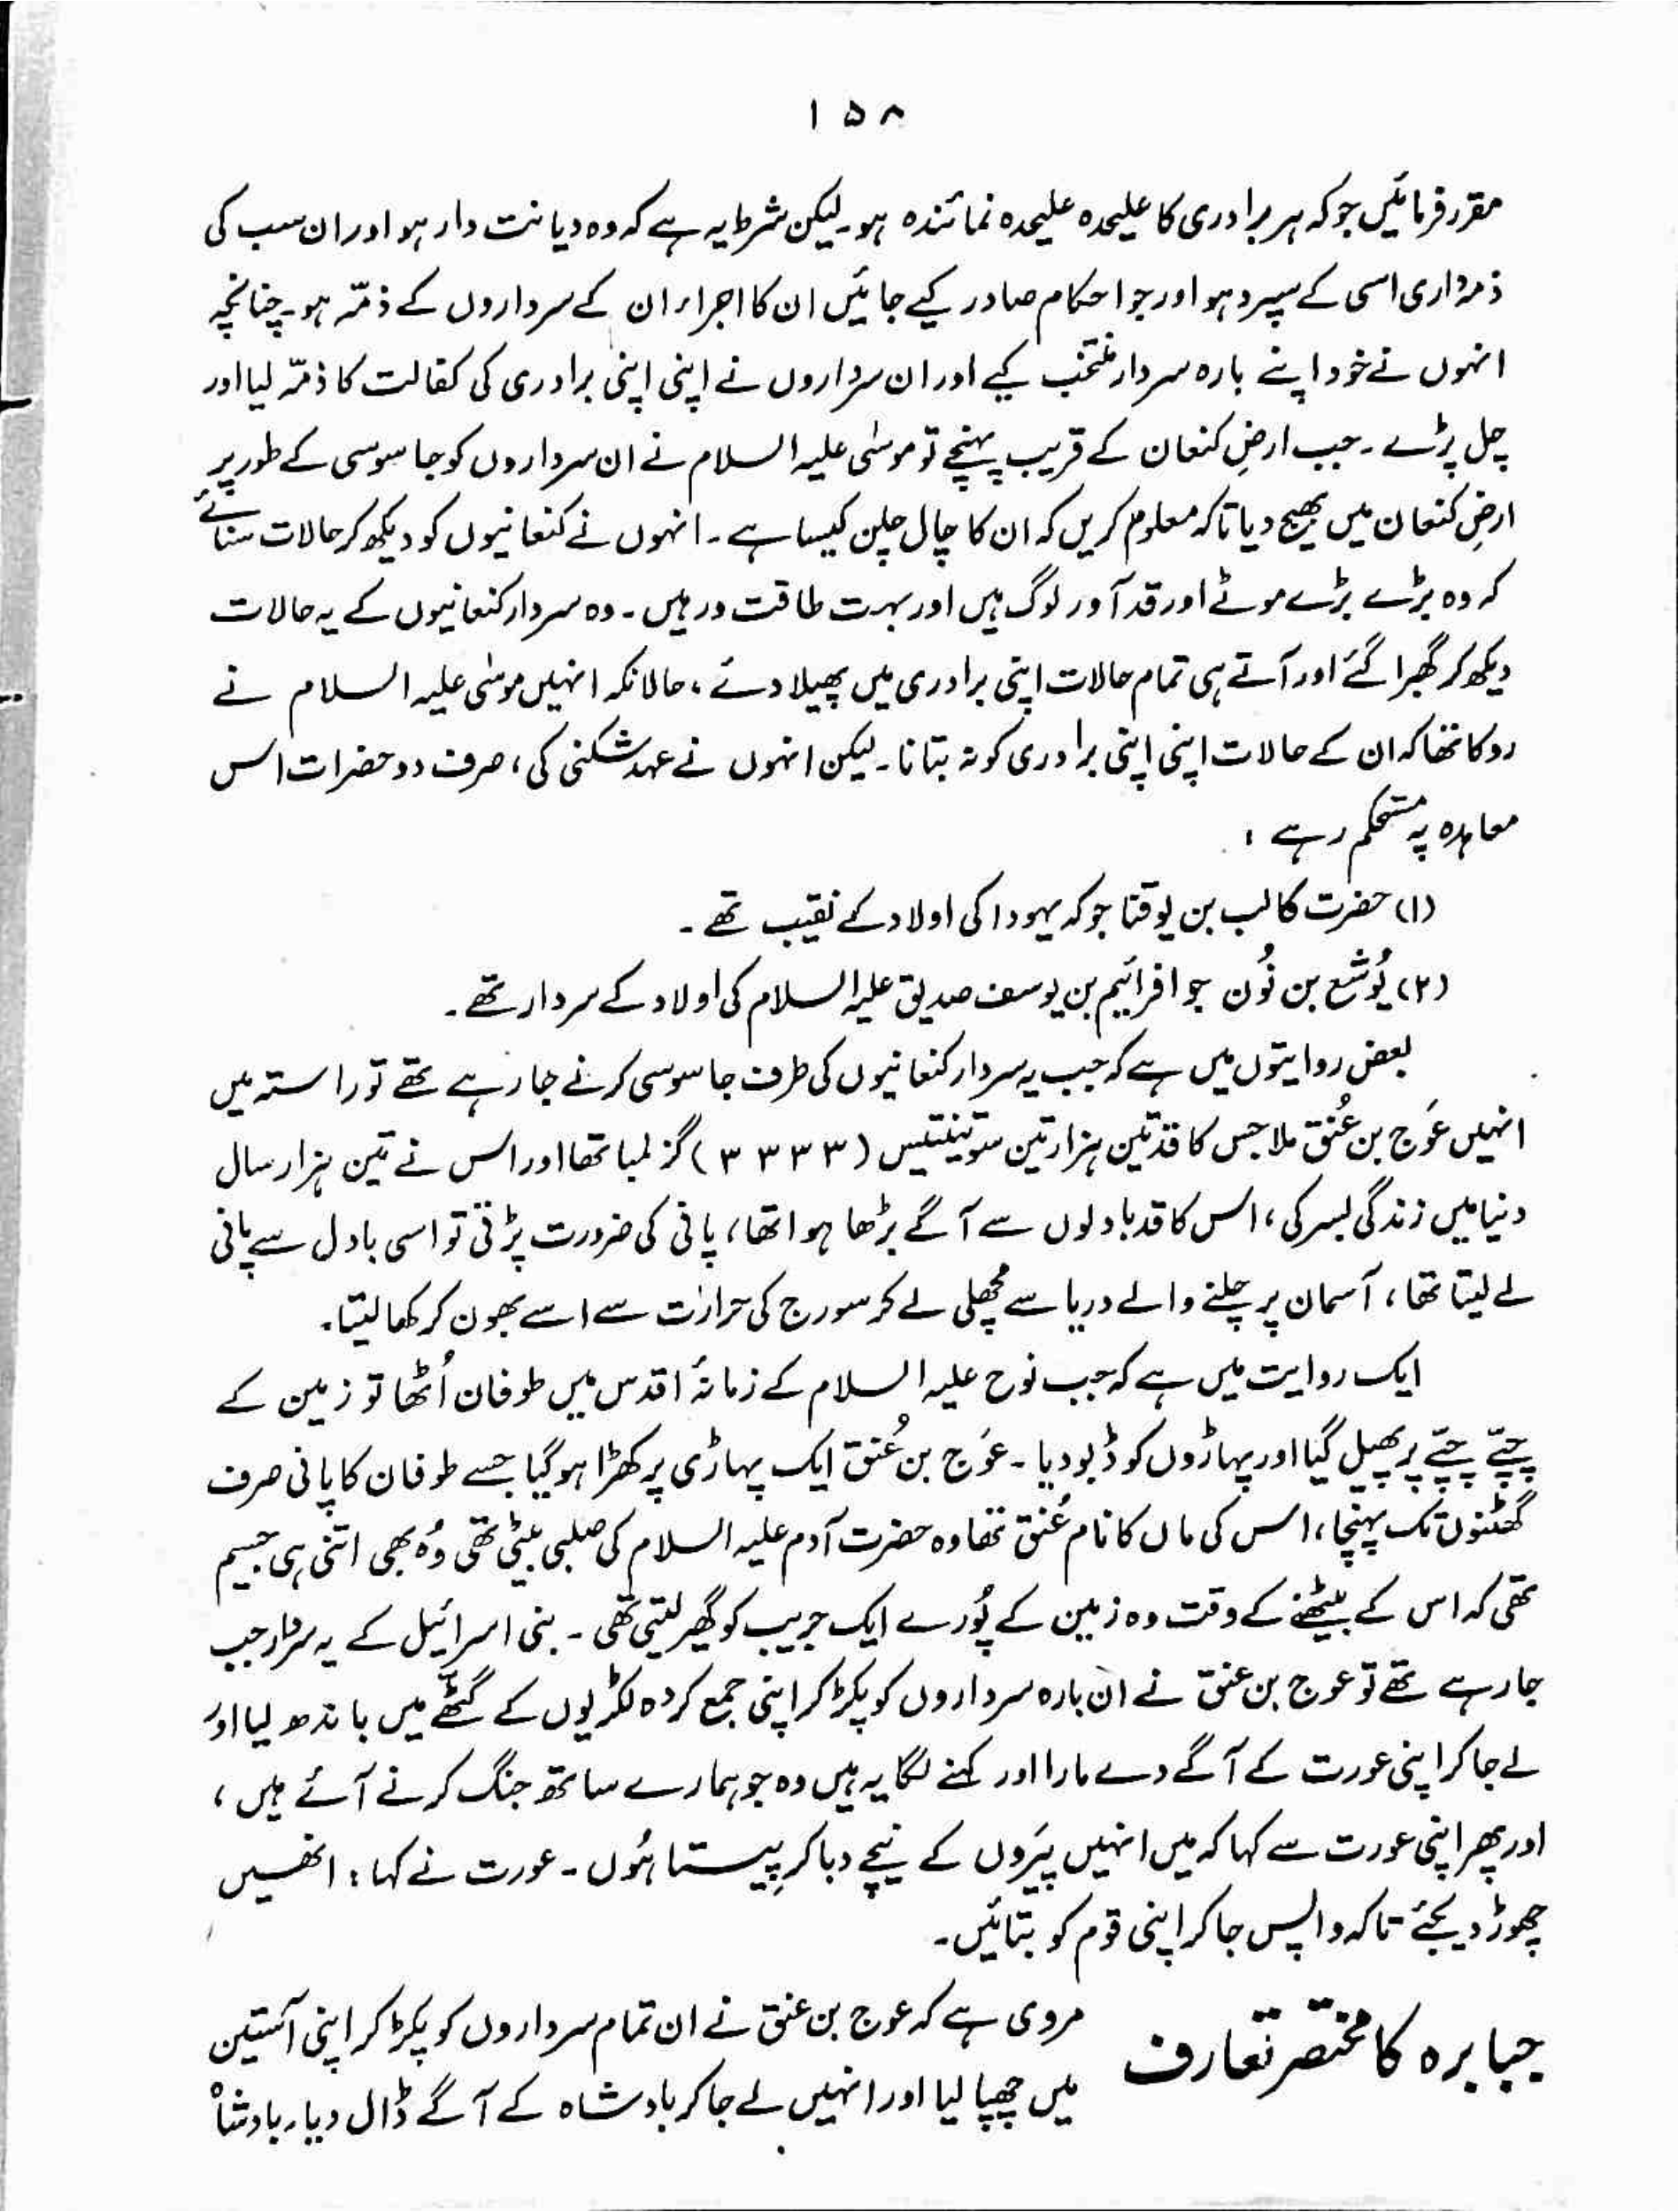 ۱۵۸
مقرر فرمائیں جو کہ ہر برادری کا علیحدہ علیحدہ نمائندہ ہو۔ لیکن شرط یہ ہے کہ وہ دیانت دار ہو اور ان سب کی
ذمہ داری اسی کے سپرد ہو اور جو احکام صادر کیے جائیں ان کا اجراء ان کے سرداروں کے ذمّہ ہو۔ چنانچہ
انہوں نے خود اپنے بارہ سردار منتخب کیے اور ان سرداروں نے اپنی اپنی برادری کی کفالت کا ذمّہ لیا اور
چل پڑے۔ جب ارضِ کنعان کے قریب پہنچے تو موسٰی علیہ السلام نے ان سرداروں کو جاسوسی کے طور پر
ارضِ کنعان میں بھیج دیا تاکہ معلوم کریں کہ ان کا چال چلن کیسا ہے۔ انہوں نے کنعانیوں کو دیکھ کر حالات سنائے
کہ وہ بڑے بڑے موٹے اور قد آور لوگ ہیں اور بہت طاقت ور ہیں۔ وہ سردار کنعانیوں کے یہ حالات
دیکھ کر گھبرا گئے اور آتے ہی تمام حالات اپنی برادری میں پھیلا دئے، حالانکہ انہیں موسٰی علیہ السلام نے
روکا تھا کہ ان کے حالات اپنی اپنی برادری کو نہ بتانا۔ لیکن انہوں نے عہد شکنی کی، صرف دو حضرات اس
معاہدہ پہ مستحکم رہے :
(۱) حضرت کالب بن یوقنا جو کہ یہودا کی اولاد کے نقیب تھے۔
(۲) یُوشع بن نُون جو افرائیم بن یوسف صدیق علیہ السلام کی اولاد کے سردار تھے۔
بعض روایتوں میں ہے کہ جب یہ سردار کنعانیوں کی طرف جاسوسی کرنے جا رہے تھے تو راستہ میں
انہیں عَوج بن عُنق ملا جس کا قد تین ہزار تین سو تینتیس (۳۳۳۳) گز لمبا تھا اور اس نے تین ہزار سال
دنیا میں زندگی بسر کی، اس کا قد بادلوں سے آگے بڑھا ہوا تھا، پانی کی ضرورت پڑتی تو اسی بادل سے پانی
لے لیتا تھا، آسمان پر چلنے والے دریا سے مچھلی لے کر سورج کی حرارت سے اسے بھون کر کھا لیتا۔
ایک روایت میں ہے کہ جب نوح علیہ السلام کے زمانۂ اقدس میں طوفان اُٹھا تو زمین کے
چپّے چپّے پر پھیل گیا اور پہاڑوں کو ڈبو دیا۔ عَوج بن عُنق ایک پہاڑی پر کھڑا ہوگیا جسے طوفان کا پانی صرف
گھٹنوں تک پہنچا، اس کی ماں کا نام عُنق تھا وہ حضرت آدم علیہ السلام کی صلبی بیٹی تھی وُہ بھی اتنی ہی جسیم
تھی کہ اس کے بیٹھنے کے وقت وہ زمین کے پُورے ایک جریب کو گھیر لیتی تھی۔ بنی اسرائیل کے یہ سردار جب
جا رہے تھے تو عوج بن عنق نے ان بارہ سرداروں کو پکڑ کر اپنی جمع کردہ لکڑیوں کے گٹھّے میں باندھ لیا اور
لے جا کر اپنی عورت کے آگے دے مارا اور کہنے لگا یہ ہیں وہ جو ہمارے ساتھ جنگ کرنے آئے ہیں،
اور پھر اپنی عورت سے کہا کہ میں انہیں پَیروں کے نیچے دبا کر پِیستا ہُوں۔ عورت نے کہا : انھیں
چھوڑ دیجئے تاکہ واپس جا کر اپنی قوم کو بتائیں۔
جبابرہ کا مختصر تعارف
مروی ہے کہ عوج بن عنق نے ان تمام سرداروں کو پکڑ کر اپنی آستین
میں چھپا لیا اور انہیں لے جا کر بادشاہ کے آگے ڈال دیا۔ بادشاہ